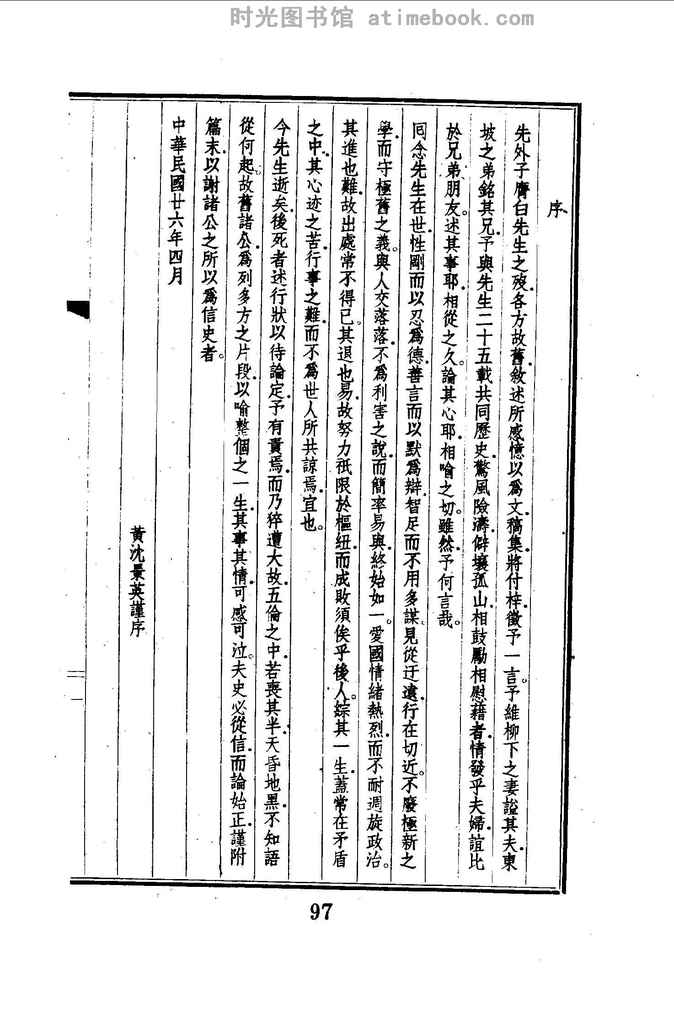 时光图书馆 atimebook.com
序
先外子膺白先生之歿各方故舊敘述所感憶以爲文稿集將付梓徵予一言。予維柳下之妻謚其夫東
坡之弟銘其兄予與先生二十五載共同歷史驚風險濤僻壤孤山相鼓勵相慰藉者情發乎夫婦誼比
於兄弟朋友。述其事耶相從之久論其心耶相喻之切雖然予何言哉。
囘念先生在世性剛而以忍爲德善言而以默爲辯智足而不用多謀見從迂遠行在切近。不廢極新之
學而守極舊之義。與人交落落不爲利害之說而簡率易與終始如一。愛國情緒熱烈而不耐週旋政治。
其進也難故出處常不得已。其退也易故努力祇限於樞紐而成敗須俟乎後人。綜其一生蓋常在矛盾
之中其心迹之苦行事之難而不爲世人所共諒焉宜也。
今先生逝矣後死者述行狀以待論定予有責焉而乃猝遭大故五倫之中若喪其半天昏地黑不知語
從何起故舊諸公爲列多方之片段以喻整個之一生其事其情可感可泣。夫史必從信而論始正謹附
篇末以謝諸公之所以爲信史者。
中華民國廿六年四月
黃沈景英謹序
一
97